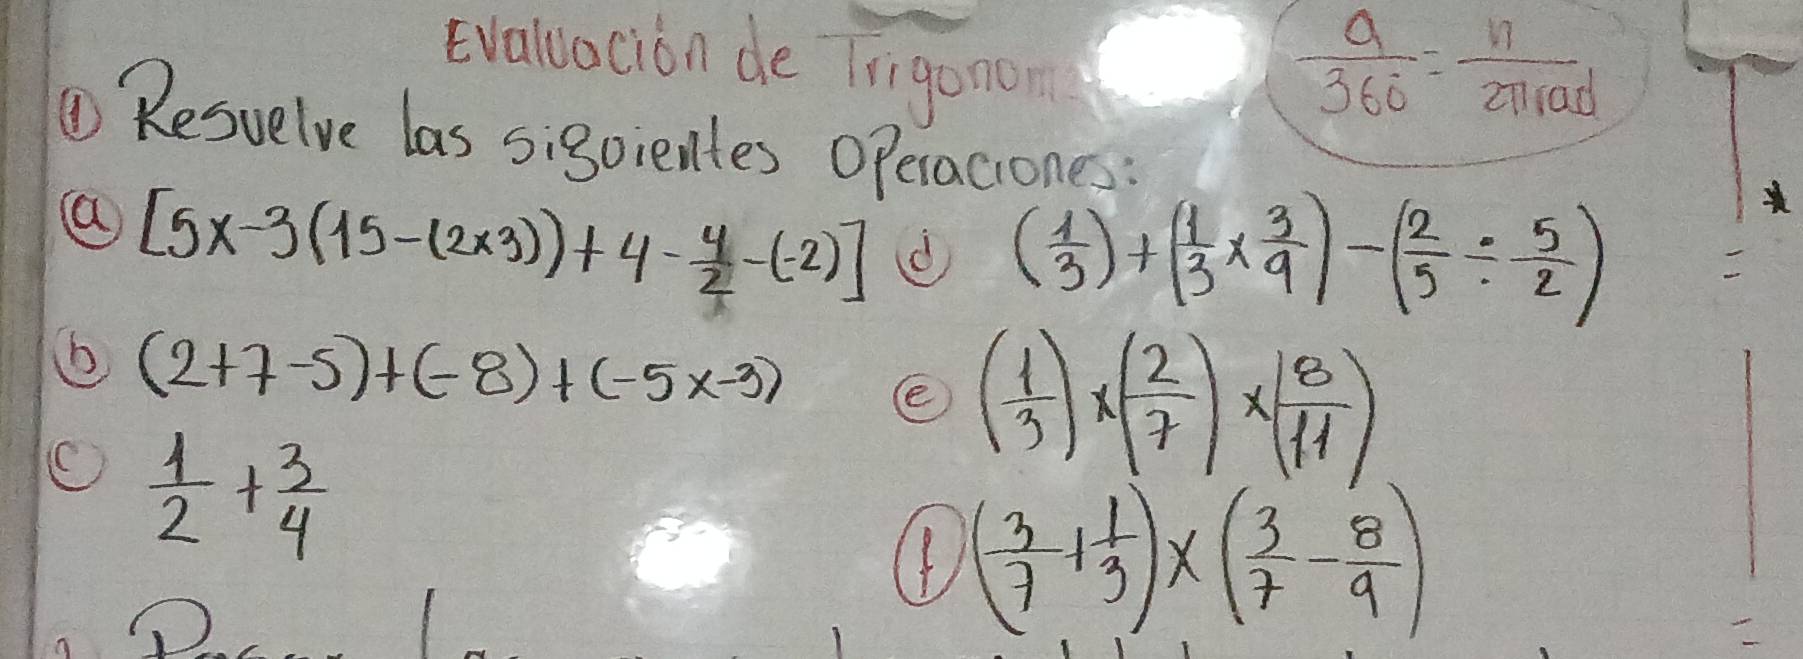 Evaluación de Trigonom
a/360° = n/2π rad
① Resuelve las siguientes Operaciones:
ⓐ [5x-3(15-(2x3))+4-4/2-(-2)]
ⓓ (1/3)+(1/3 x 3/9)-(2/5 ÷ 5/2)
ⓑ (2+7-5)+(-8)+(-5x-3)
ⓔ (1/3)x(2/7)x(8/11)
ⓒ 1/2+3/4
ⓕ (3/7+1/3)x(3/7-8/9)